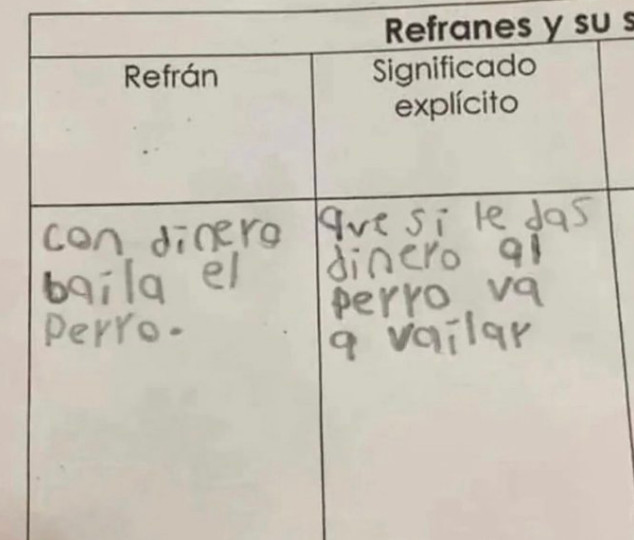 Refranes y su s
Refrán
Significado
explícito
con dinero
baila el
perro.
que si le das
dinero al
perro va
a vailar